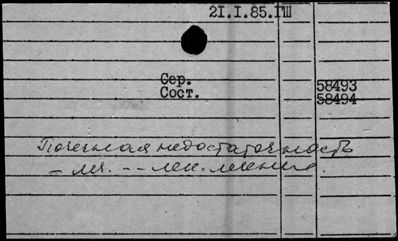 21.I.85.IШ
Сер. 58493
Сост. 58494
Почечная недостаточность